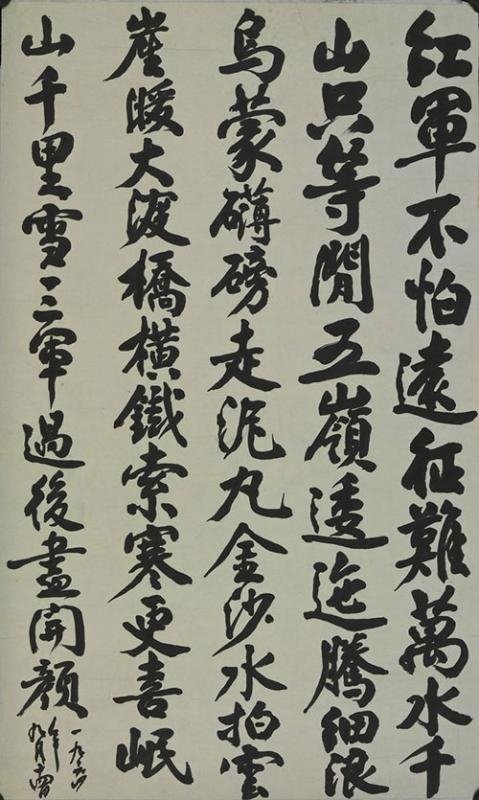 紅軍不怕遠征難萬水千
山只等閒五嶺逶迤騰細浪
烏蒙礴磅走泥丸金沙水拍雲
崖暖大渡橋橫鐵索寒更喜岷
山千里雪三軍過後盡開顏
一九六
年